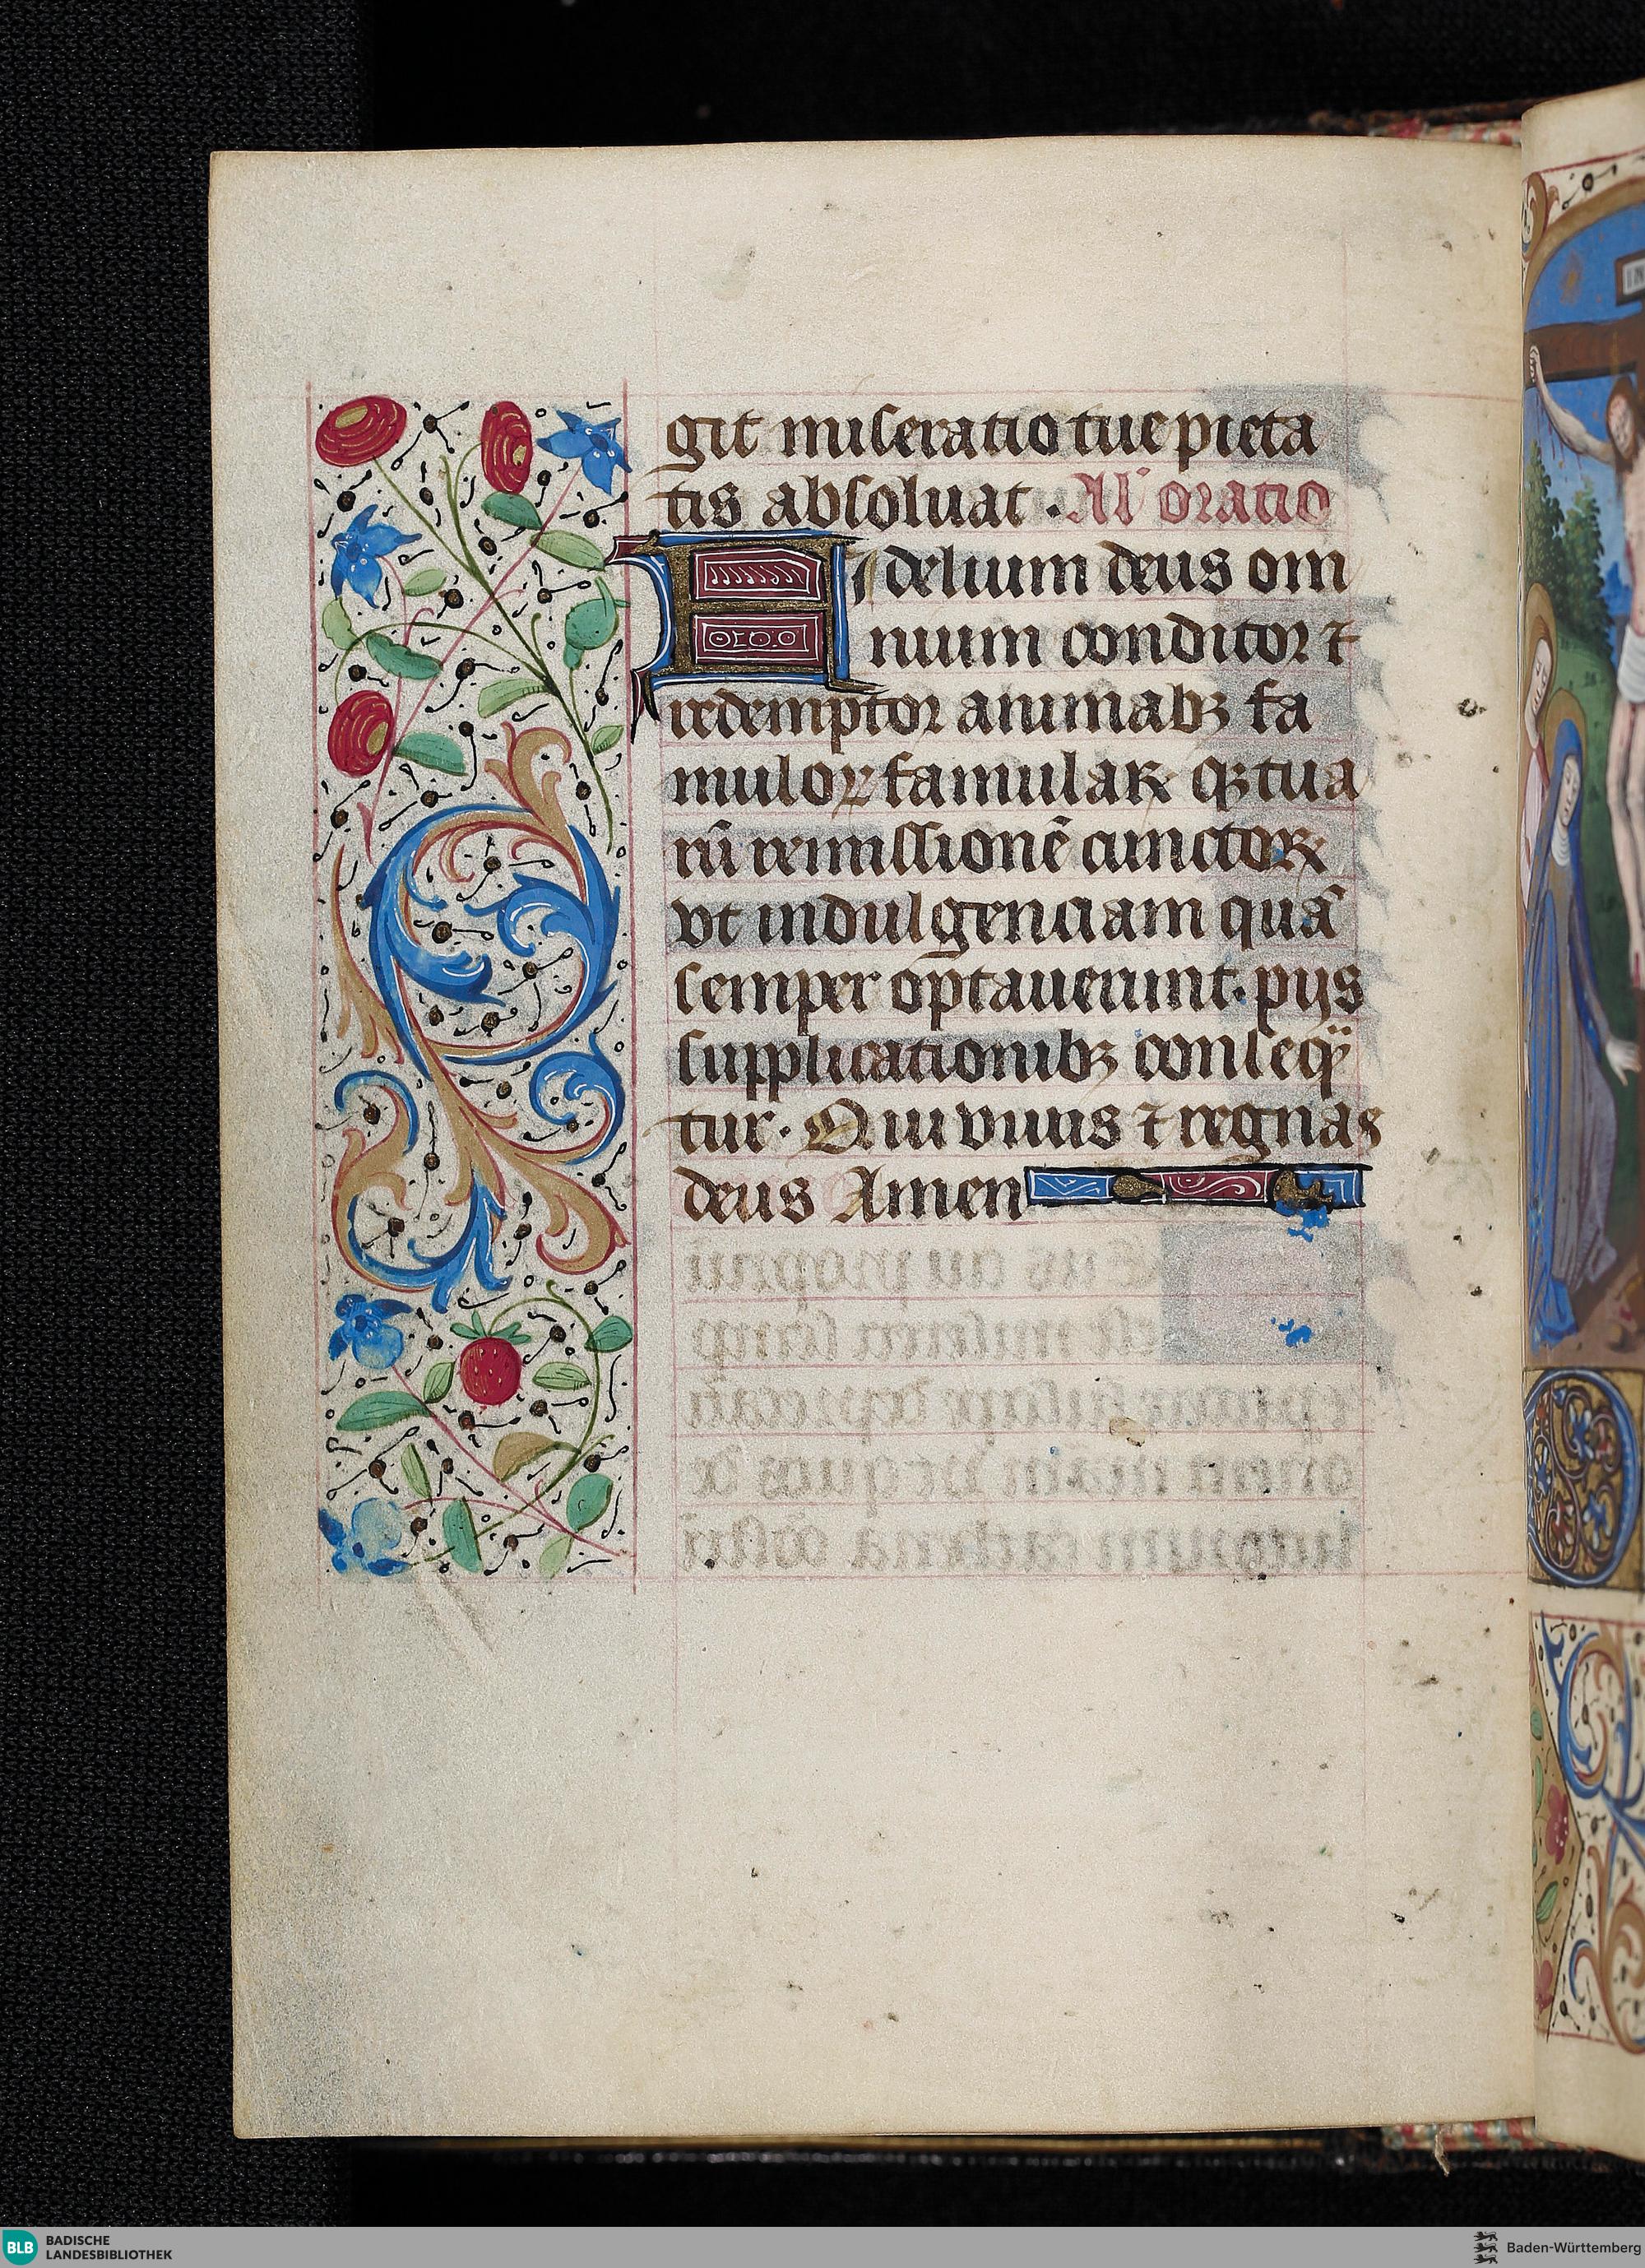 git miseratio tue pieta
tis absoluat · Al' oratio
Fidelium deus om
nium conditor ⁊
redemptor animabꝫ fa
muloꝝ famulaꝝ qꝫ tua
rū remissionē cunctoꝝ
vt indulgenciam quā
semper optauerunt. pijs
supplicationibꝫ conseq̄
tur. Qui viuis ⁊ regnas
deus Amen
BLB BADISCHE
LANDESBIBLIOTHEK
Baden-Württemberg